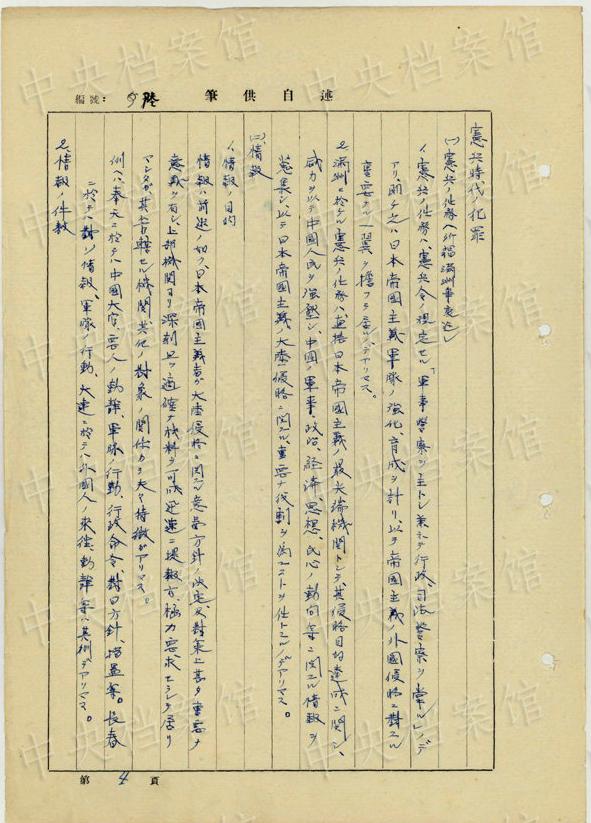 述自供筆
編號:
憲兵時代ノ犯罪
(一)憲兵ノ任務(所謂滿洲事変迄)
1、憲兵ノ任務ハ、憲兵令ノ規定セル「軍事警察ヲ主トシ兼ネテ行政、司法警察ヲ掌ル」ノデ
アリ、即チ之ハ日本帝國主義軍隊ノ強化、育成ヲ計リ、以テ帝國主義ノ外國侵略ニ対スル
重要ナル一翼ヲ擔フテ居ルノデアリマス。
2、滿洲ニ於ケル憲兵ノ任務ハ直接日本帝國主義ノ最尖端機関トシテ其侵略目的達成ニ関シ、
威力ヲ以テ中國人民ヲ強壓シ、中國ノ軍事、政治、経済、思想、民心ノ動向等ニ関スル情報ヲ
蒐集シ、以テ日本帝國主義ノ大陸侵略ニ関スル重要ナ役割ヲ為スコトヲ任トスルノデアリマス。
(二)情報
1、情報ノ目的
情報ハ前述ノ如ク日本帝國主義者ガ大陸侵略ニ関スル意啚方針ノ決定及対策上甚ダ重要ナ
意義ヲ有シ、上部機関ヨリ深刻且ツ適確ナ材料ヲ可成迅速ニ提報方極力要求セラレテ居リ
マシタガ、其管轄セル機関其他ノ対象ノ関係カラ夫々特徴ガアリマス。
例ヘバ、奉天ニ於テハ中國大官、要人ノ動静、軍隊ノ行動、行政命令、対日方針、排日等。長春
ニ於テハ対ソ情報、軍隊ノ行動、大連ニ於テハ外國人ノ来往、動静等ハ其例デアリマス。
2、情報ノ件数
第 4 頁
中央档案馆